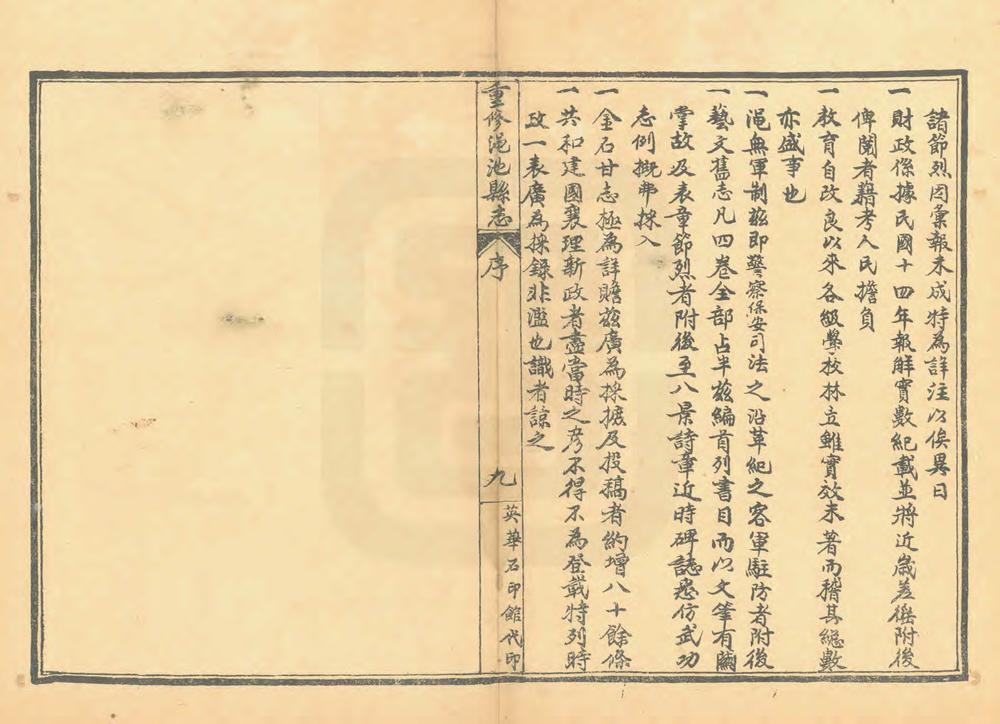 諸節烈因彙報未成特為詳注以俟異日
一財政係據民國十四年報解實數紀載並將近歲差徭附後
俾閱者藉考人民擔負
一教育自改良以來各級學校林立雖實效未著而稽其總數
亦盛事也
一澠無軍制茲即警察保安司法之沿革紀之客軍駐防者附後
一藝文舊志凡四卷全部占半茲編首列書目而以文筆有關
掌故及表章節烈者附後至八景詩章近時碑誌悉仿武功
志例擬弗採入
一金石甘志極為詳贍茲廣為採摭及投稿者約增八十餘條
一共和建國襄理新政者盡當時之彥不得不為登載特列時
政一表廣為採錄非濫也識者諒之
重修澠池縣志
序
九
英華石印館代印